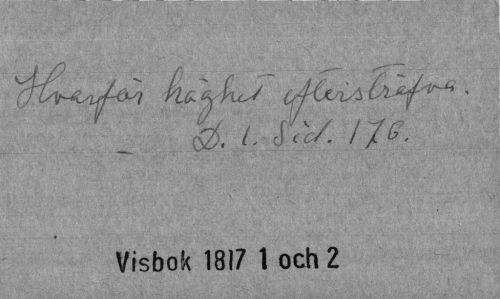 Hvarför höghet eftersträfva.
— D. 1. Sid. 176.
Visbok 1817 1 och 2